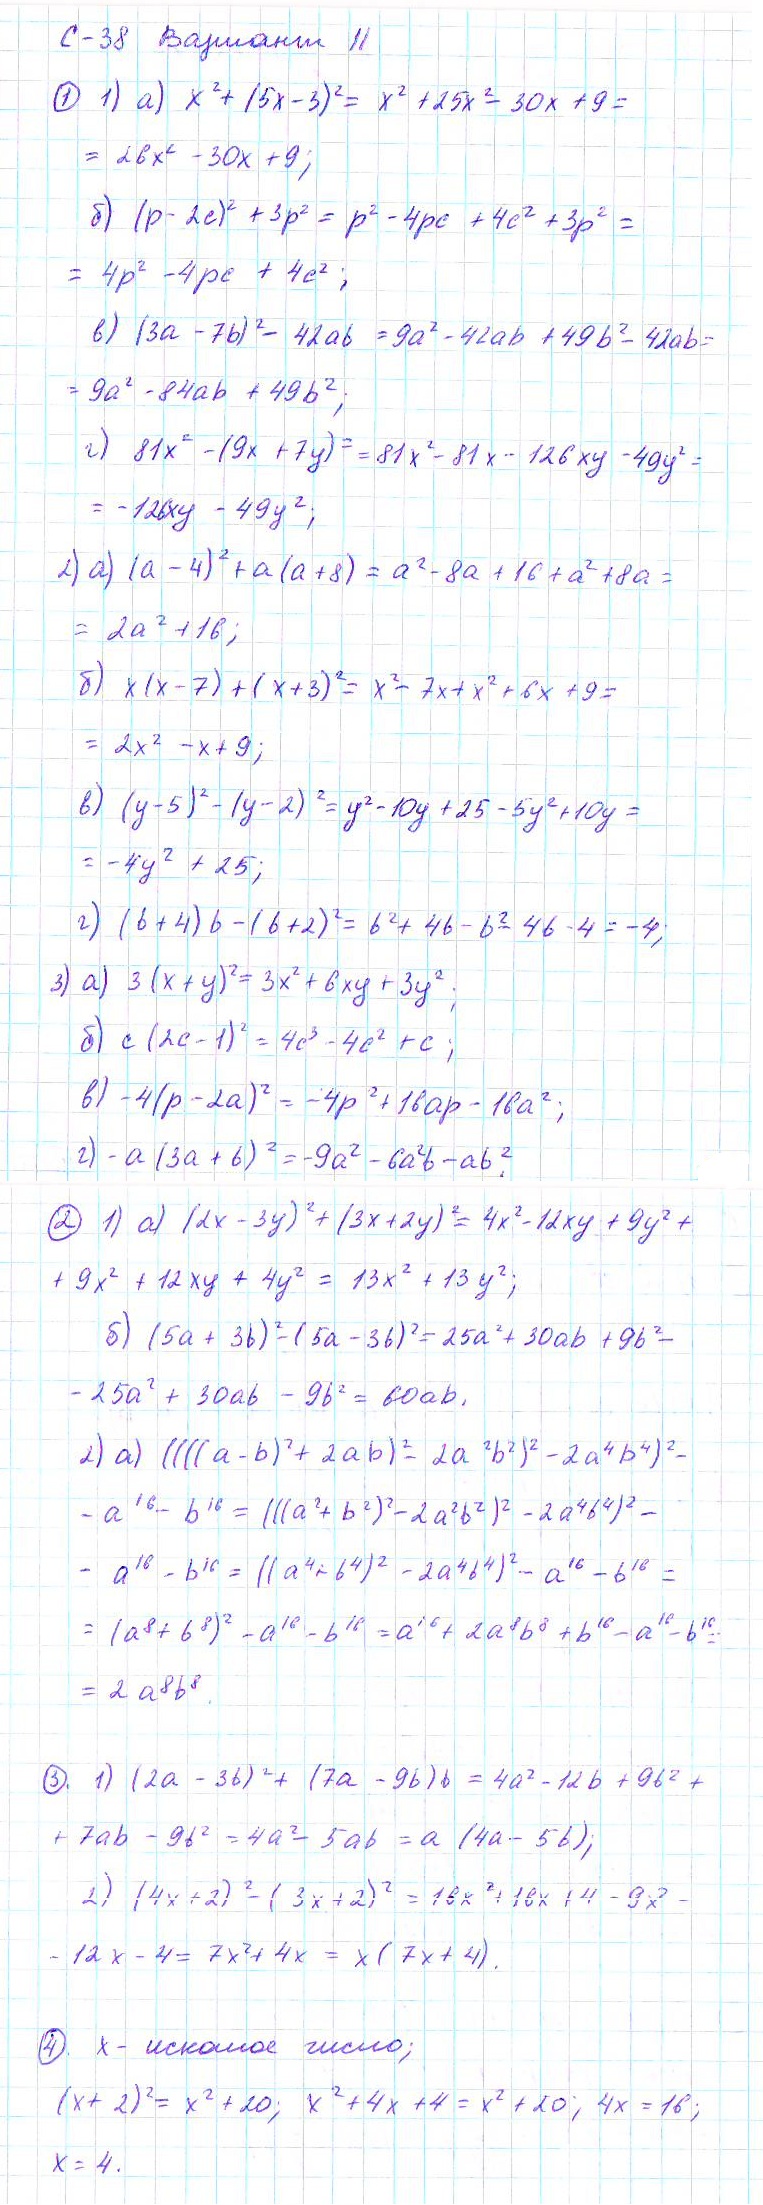 С-38 Вариант II
① 1) а) x² + (5x-3)² = x² + 25x² - 30x + 9 =
= 26x² - 30x + 9;
б) (p - 2c)² + 3p² = p² - 4pc + 4c² + 3p² =
= 4p² - 4pc + 4c²;
в) (3a - 7b)² - 42ab = 9a² - 42ab + 49b² - 42ab =
= 9a² - 84ab + 49b²;
г) 81x² - (9x + 7y)² = 81x² - 81x - 126xy - 49y² =
= -126xy - 49y²;
2) а) (a - 4)² + a(a+8) = a² - 8a + 16 + a² + 8a =
= 2a² + 16;
б) x(x-7) + (x+3)² = x² - 7x + x² + 6x + 9 =
= 2x² - x + 9;
в) (y-5)² - (y-2)² = y² - 10y + 25 - 5y² + 10y =
= -4y² + 25;
г) (b+4)b - (b+2)² = b² + 4b - b² - 4b - 4 = -4;
3) а) 3(x+y)² = 3x² + 6xy + 3y²;
б) c(2c-1)² = 4c³ - 4c² + c;
в) -4(p-2a)² = -4p² + 16ap - 16a²;
г) -a(3a+b)² = -9a² - 6a²b - ab².
② 1) а) (2x - 3y)² + (3x+2y)² = 4x² - 12xy + 9y² +
+ 9x² + 12xy + 4y² = 13x² + 13y²;
б) (5a + 3b)² - (5a - 3b)² = 25a² + 30ab + 9b² -
- 25a² + 30ab - 9b² = 60ab.
2) а) ((((a-b)² + 2ab)² - 2a²b²)² - 2a⁴b⁴)² -
- a¹⁶ - b¹⁶ = (((a² + b²)² - 2a²b²)² - 2a⁴b⁴)² -
- a¹⁶ - b¹⁶ = ((a⁴ + b⁴)² - 2a⁴b⁴)² - a¹⁶ - b¹⁶ =
= (a⁸ + b⁸)² - a¹⁶ - b¹⁶ = a¹⁶ + 2a⁸b⁸ + b¹⁶ - a¹⁶ - b¹⁶ =
= 2a⁸b⁸.
③. 1) (2a - 3b)² + (7a - 9b)b = 4a² - 12b + 9b² +
+ 7ab - 9b² = 4a² - 5ab = a(4a - 5b);
2) (4x+2)² - (3x+2)² = 16x² + 16x + 4 - 9x² -
- 12x - 4 = 7x² + 4x = x(7x+4).
④. x - искомое число;
(x+2)² = x² + 20; x² + 4x + 4 = x² + 20; 4x = 16;
x = 4.